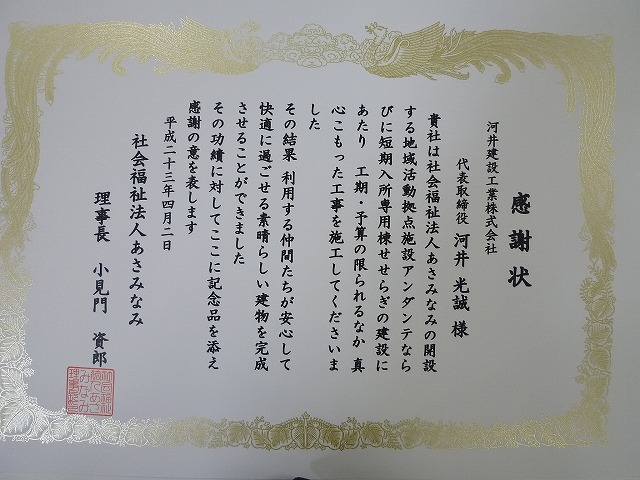 感謝状
河井建設工業株式会社
代表取締役 河井 光誠 様
貴社は社会福祉法人あさみなみの開設
する地域活動拠点施設アンダンテなら
びに短期入所専用棟せせらぎの建設に
あたり 工期・予算の限られるなか 真
心こもった工事を施工してくださいま
した
その結果 利用する仲間たちが安心して
快適に過ごせる素晴らしい建物を完成
させることができました
その功績に対してここに記念品を添え
感謝の意を表します
平成二十三年四月二日
社会福祉法人あさみなみ
理事長 小見門 資郎